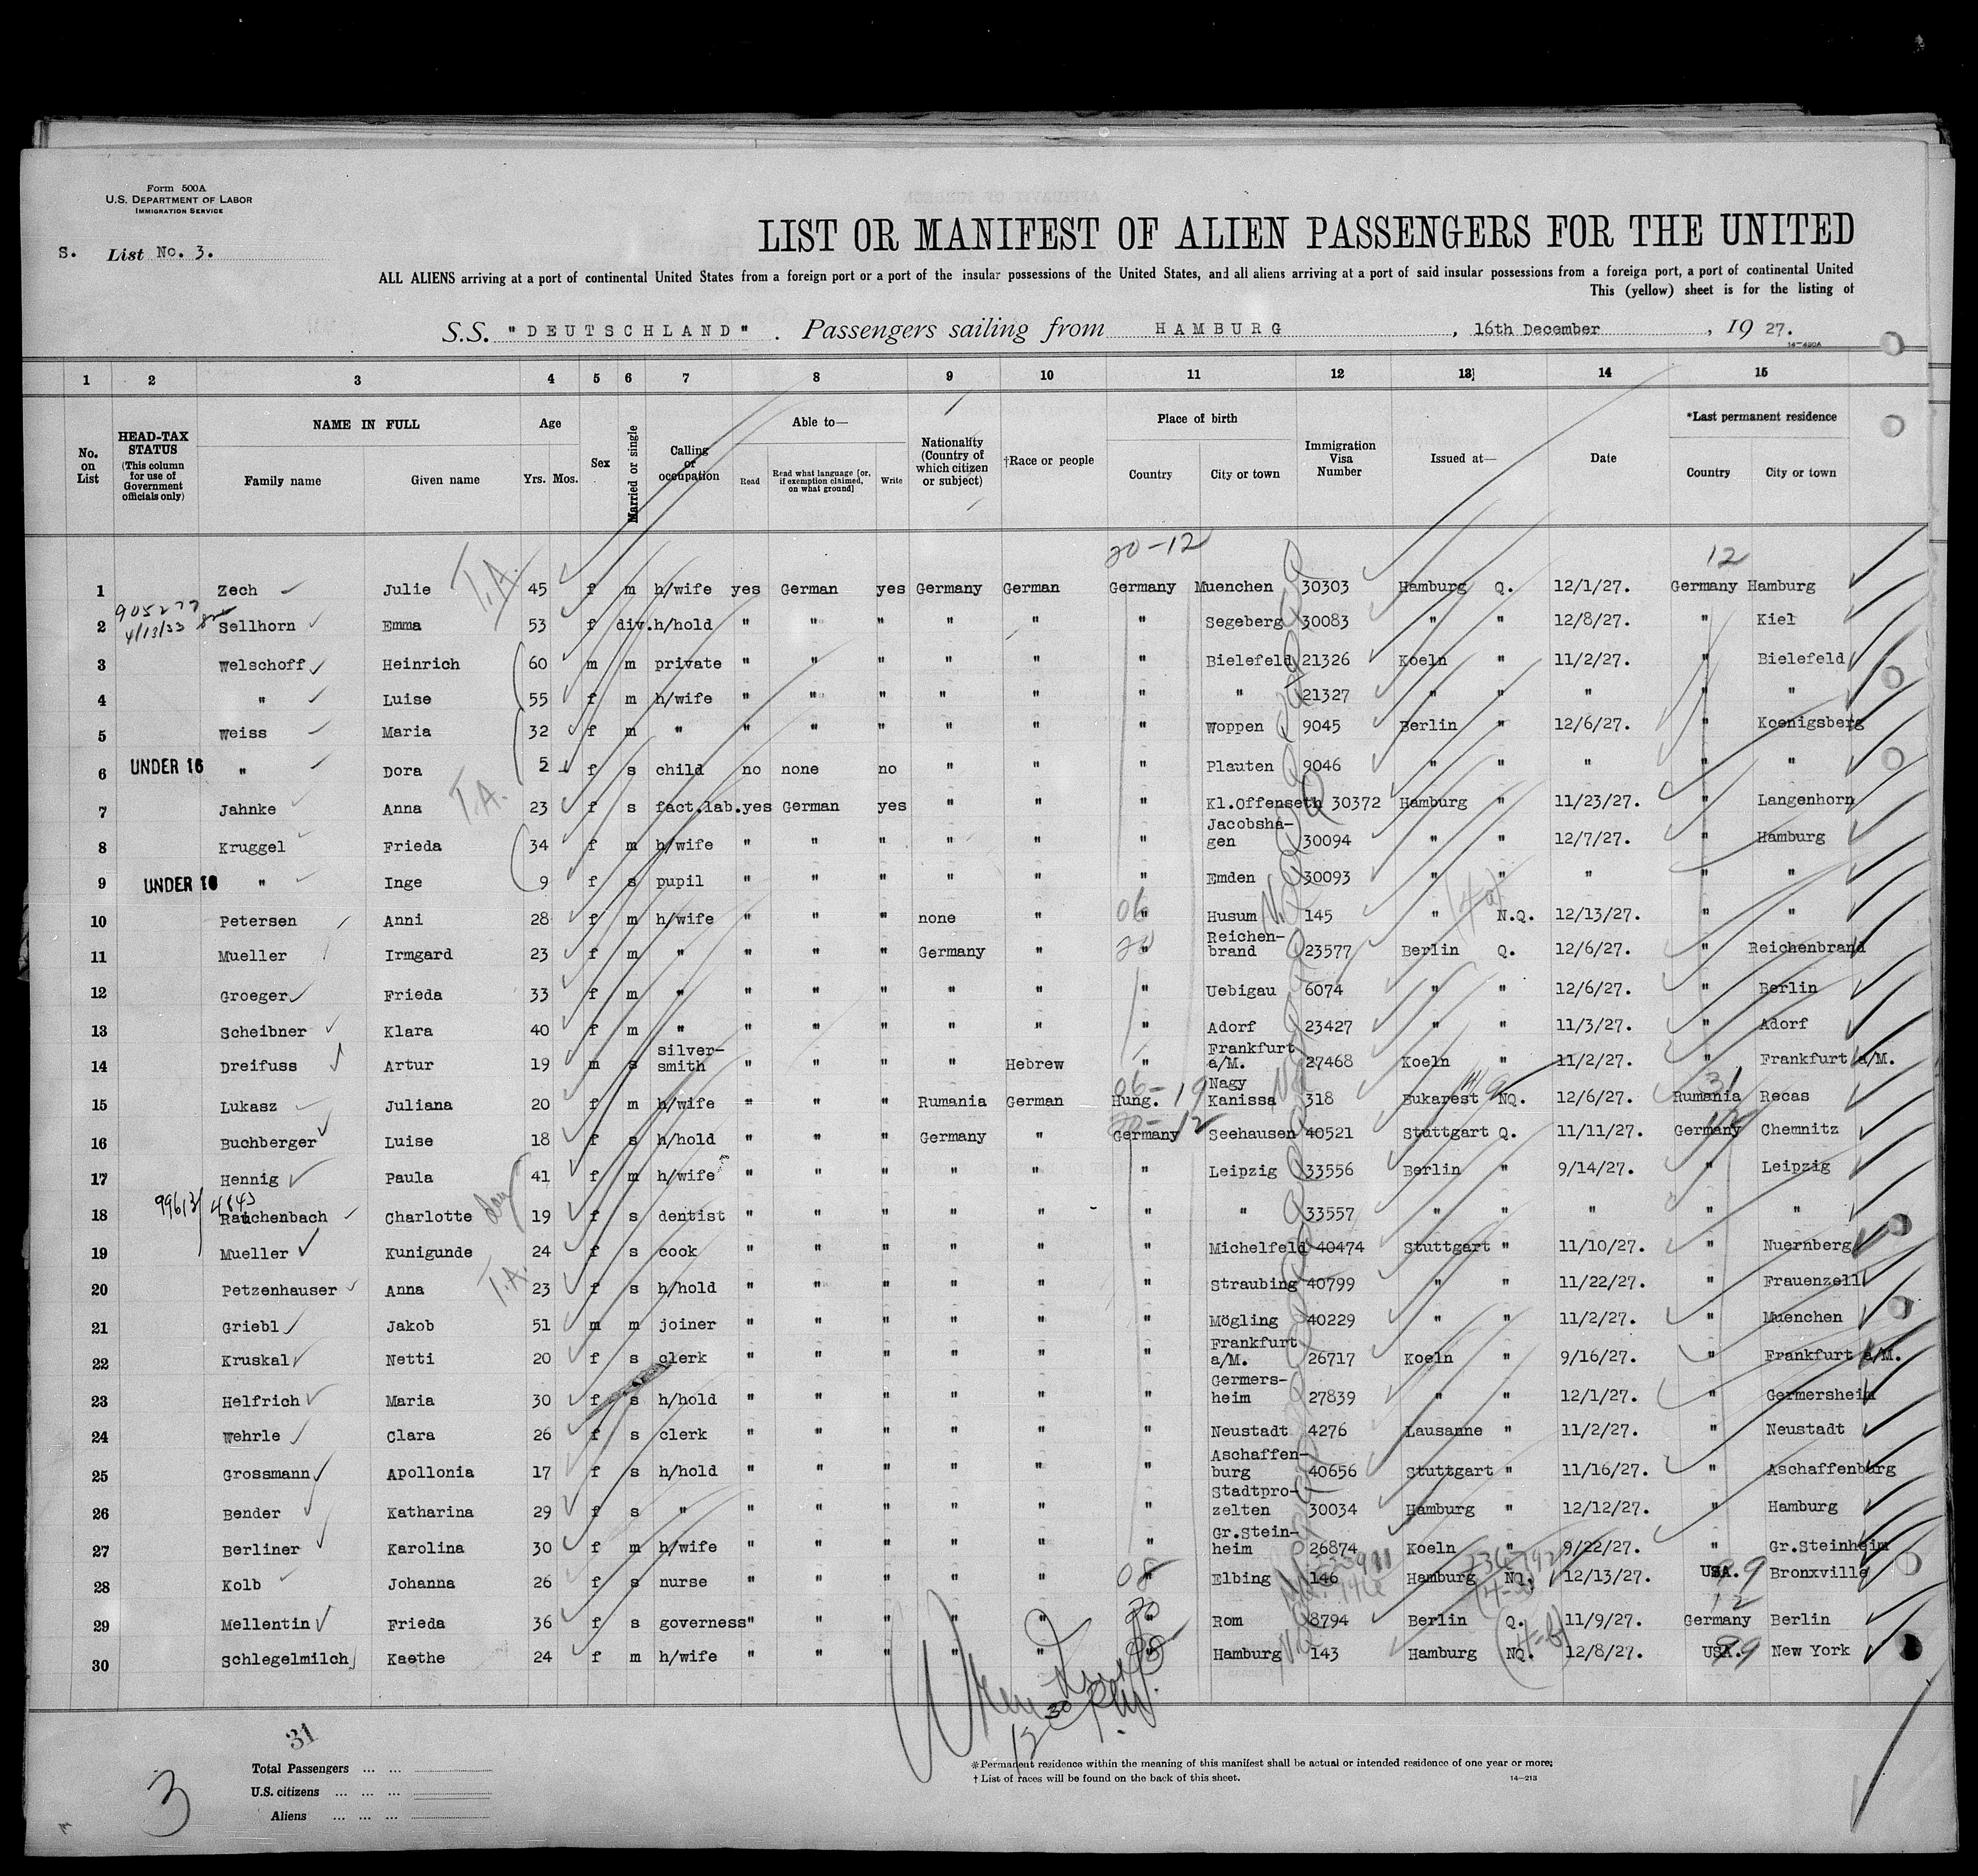 Form 500A
U.S. DEPARTMENT OF LABOR
IMMIGRATION SERVICE
S. List No. 3.
LIST OR MANIFEST OF ALIEN PASSENGERS FOR THE UNITED
ALL ALIENS arriving at a port of continental United States from a foreign port or a port of the insular possessions of the United States, and all aliens arriving at a port of said insular possessions from a foreign port, a port of continental United
This (yellow) sheet is for the listing of
S.S. "DEUTSCHLAND". Passengers sailing from HAMBURG, 16th December, 1927.
14—480A
1 2 3 4 5 6 7 8 9 10 11 12 13 14 15
No. on List
HEAD-TAX STATUS (This column for use of Government officials only)
NAME IN FULL
Family name Given name
Age Yrs. Mos.
Sex
Married or single
Calling or occupation
Able to—
Read Read what language [or, if exemption claimed, on what ground] Write
Nationality (Country of which citizen or subject)
†Race or people
Place of birth
Country City or town
Immigration Visa Number
Issued at—
Date
*Last permanent residence
Country City or town
20-12 12
1 Zech Julie T.A. 45 f m h/wife yes German yes Germany German Germany Muenchen 30303 Hamburg Q. 12/1/27. Germany Hamburg
905277
4/13/33
2 Sellhorn Emma 53 f div. h/hold " " " " " " Segeberg 30083 " " 12/8/27. " Kiel
3 Welschoff Heinrich 60 m m private " " " " " " Bielefeld 21326 Koeln " 11/2/27. " Bielefeld
4 " Luise 55 f m h/wife " " " " " " " 21327 " " " " "
5 Weiss Maria 32 f m " " " " " " " Woppen 9045 Berlin " 12/6/27. " Koenigsberg
6 UNDER 16 " Dora 5 f s child no none no " " " Plauten 9046 " " " " "
7 Jahnke Anna T.A. 23 f s fact.lab. yes German yes " " " Kl.Offenseth 30372 Hamburg " 11/23/27. " Langenhorn
8 Kruggel Frieda 34 f m h/wife " " " " " " Jacobshagen 30094 " " 12/7/27. " Hamburg
9 UNDER 16 " Inge 9 f s pupil " " " " " " Emden 30093 " " " " "
10 Petersen Anni 28 f m h/wife " " " none " 06 " Husum N. 145 " N.Q. 12/13/27. " "
11 Mueller Irmgard 23 f m " " " " Germany " 20 " Reichenbrand 23577 Berlin Q. 12/6/27. " Reichenbrand
12 Groeger Frieda 33 f m " " " " " " " Uebigau 6074 " " 12/6/27. " Berlin
13 Scheibner Klara 40 f m " " " " " " " Adorf 23427 " " 11/3/27. " Adorf
14 Dreifuss Artur 19 m s silversmith " " " " Hebrew " Frankfurt a/M. 27468 Koeln " 11/2/27. " Frankfurt a/M.
06-19 31
15 Lukasz Juliana 20 f m h/wife " " " Rumania German Hung. Nagy Kanissa 318 Bukarest NQ. 12/6/27. Rumania Recas
20-12 12
16 Buchberger Luise 18 f s h/hold " " " Germany " Germany Seehausen 40521 Stuttgart Q. 11/11/27. Germany Chemnitz
17 Hennig Paula 41 f m h/wife " " " " " " Leipzig 33556 Berlin " 9/14/27. " Leipzig
18 Rauchenbach Charlotte 19 f s dentist " " " " " " " 33557 " " " " "
19 Mueller Kunigunde 24 f s cook " " " " " " Michelfeld 40474 Stuttgart " 11/10/27. " Nuernberg
20 Petzenhauser Anna T.A. 23 f s h/hold " " " " " " Straubing 40799 " " 11/22/27. " Frauenzell
21 Griebl Jakob 51 m m joiner " " " " " " Mögling 40229 " " 11/2/27. " Muenchen
22 Kruskal Netti 20 f s clerk " " " " " " Frankfurt a/M. 26717 Koeln " 9/16/27. " Frankfurt a/M.
23 Helfrich Maria 30 f s h/hold " " " " " " Germersheim 27839 " " 12/1/27. " Germersheim
24 Wehrle Clara 26 f s clerk " " " " " " Neustadt 4276 Lausanne " 11/2/27. " Neustadt
25 Grossmann Apollonia 17 f s h/hold " " " " " " Aschaffenburg 40656 Stuttgart " 11/16/27. " Aschaffenburg
26 Bender Katharina 29 f s " " " " " " " Stadtprozelten 30034 Hamburg " 12/12/27. " Hamburg
27 Berliner Karolina 30 f m h/wife " " " " " " Gr.Steinheim 26874 Koeln " 9/22/27. " Gr.Steinheim
28 Kolb Johanna 26 f s nurse " " " " " 08 " Elbing 146 Hamburg NQ. 12/13/27. USA. 99 Bronxville
29 Mellentin Frieda 36 f s governess " " " " " 20 " Rom 8794 Berlin Q. 11/9/27. 12 Germany Berlin
30 Schlegelmilch Kaethe 24 f m h/wife " " " " " 08 " Hamburg 143 Hamburg NQ. (4-b) 12/8/27. USA. 99 New York
31
3
Total Passengers
U.S. citizens
Aliens
12 30 PM.
*Permanent residence within the meaning of this manifest shall be actual or intended residence of one year or more.
† List of races will be found on the back of this sheet.
14—213